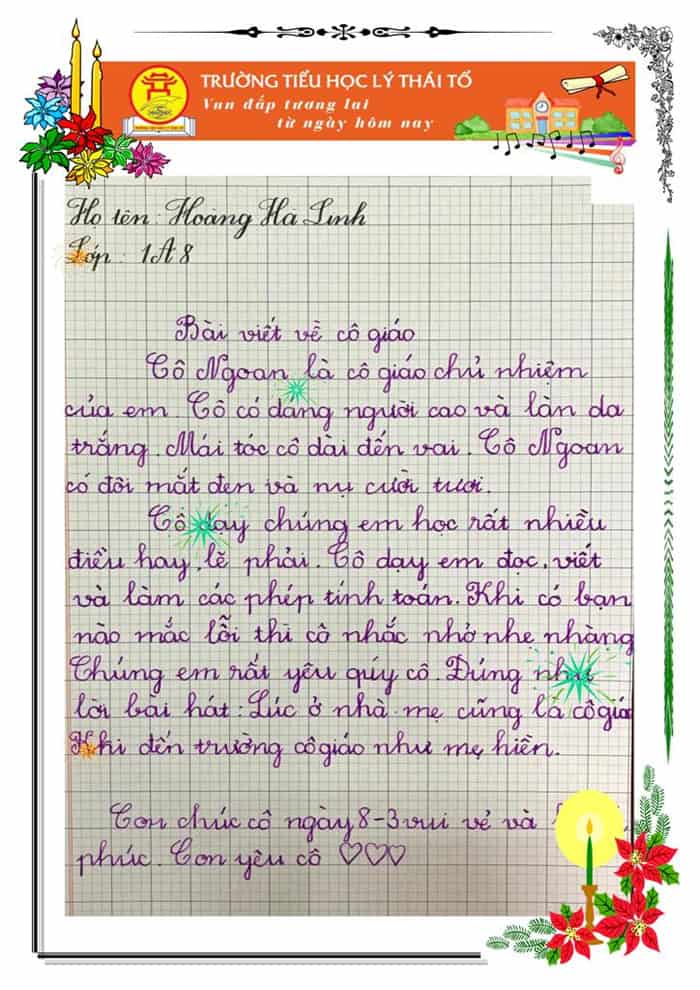 TRƯỜNG TIỂU HỌC LÝ THÁI TỔ
Vun đắp tương lai
từ ngày hôm nay
Họ tên: Hoàng Hà Linh
Lớp: 1A8
Bài viết về cô giáo
Cô Ngoan là cô giáo chủ nhiệm
của em. Cô có dáng người cao và làn da
trắng. Mái tóc cô dài đến vai. Cô Ngoan
có đôi mắt đen và nụ cười tươi.
Cô dạy chúng em học rất nhiều
điều hay, lẽ phải. Cô dạy em đọc, viết
và làm các phép tính toán. Khi có bạn
nào mắc lỗi thì cô nhắc nhở nhẹ nhàng
Chúng em rất yêu quý cô. Đúng như
lời bài hát: Lúc ở nhà mẹ cũng là cô giáo
Khi đến trường cô giáo như mẹ hiền.
Con chúc cô ngày 8-3 vui vẻ và
phúc. Con yêu cô ♡♡♡